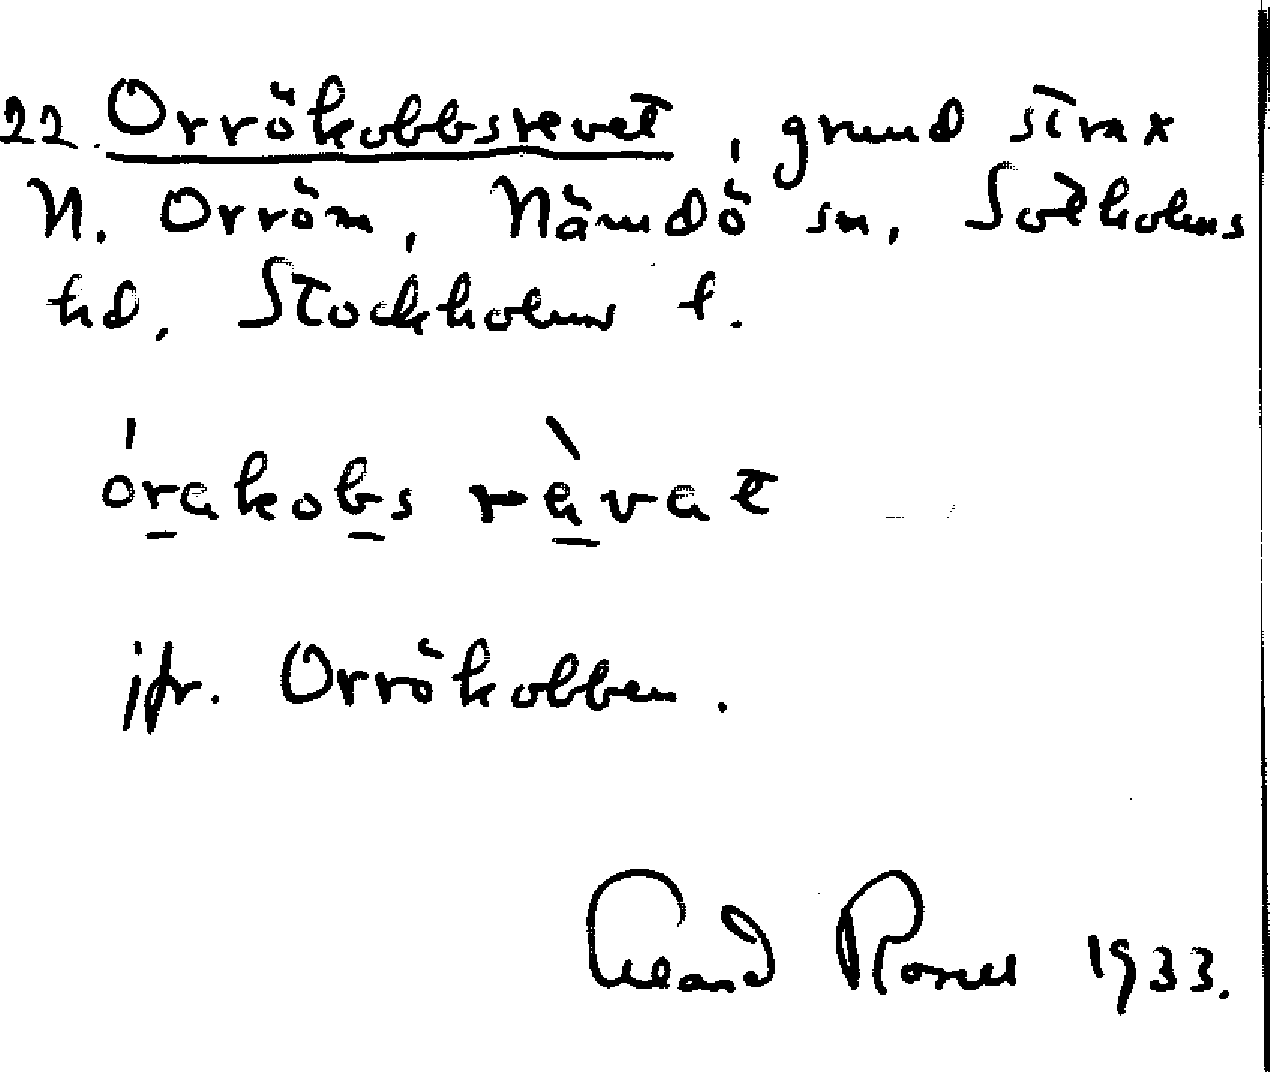 22. Orrökobbsrevet, grund strax
N. Orrön, Nämdö sn, Sotholms
hd, Stockholms l.
órakobs ràvat
jfr. Orrökobben.
Erland Rosell 1933.